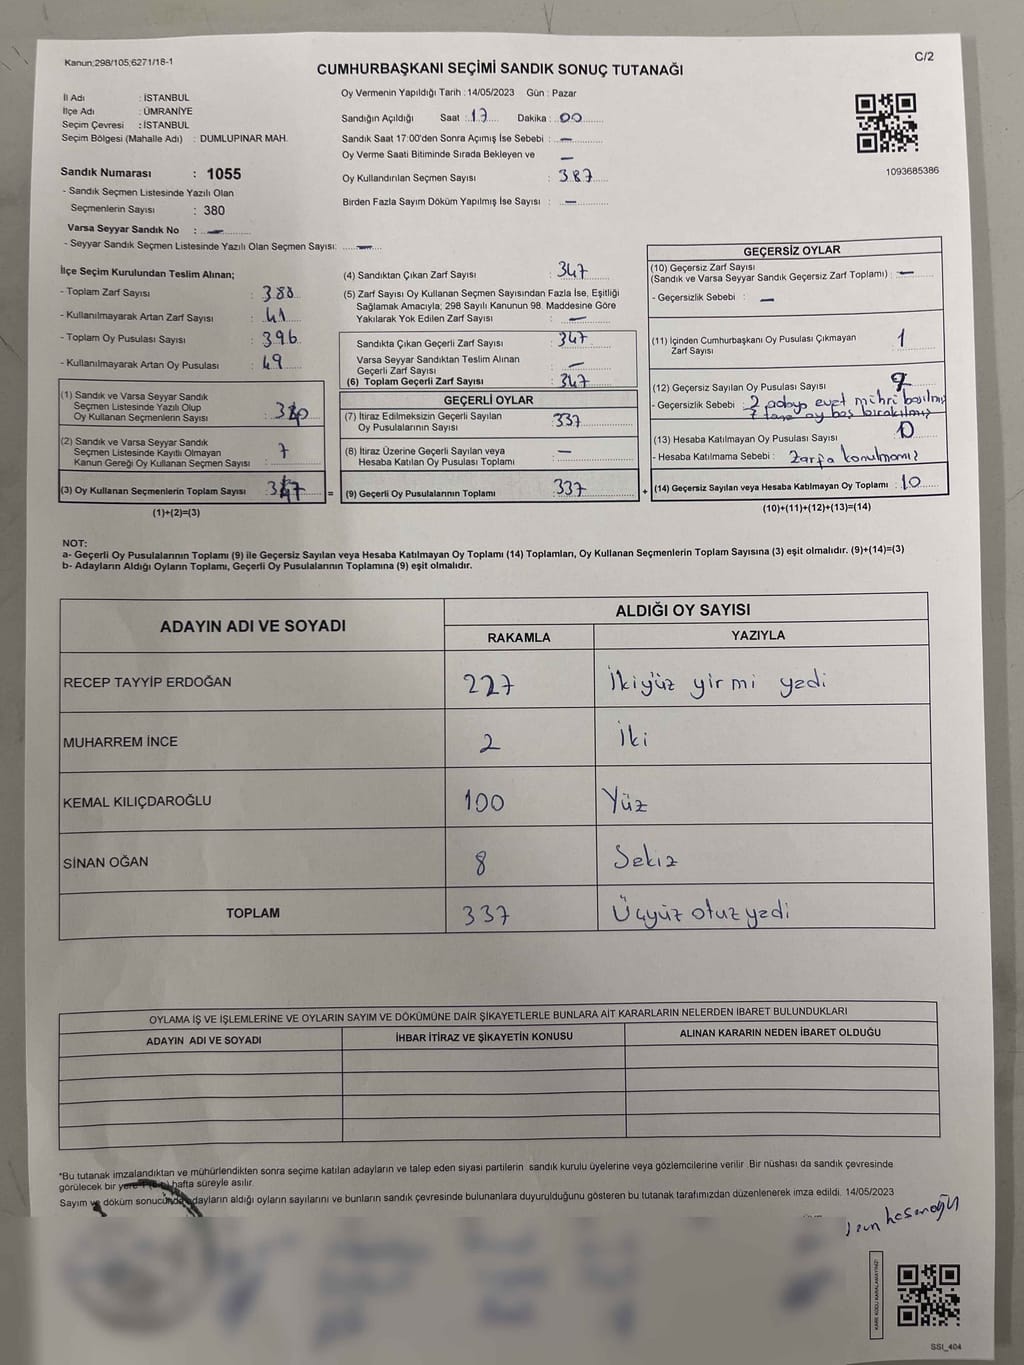 Kanun:298/105;6271/18-1
C/2
CUMHURBAŞKANI SEÇİMİ SANDIK SONUÇ TUTANAĞI
İl Adı : İSTANBUL
İlçe Adı : ÜMRANİYE
Seçim Çevresi : İSTANBUL
Seçim Bölgesi (Mahalle Adı) : DUMLUPINAR MAH.
Sandık Numarası : 1055
- Sandık Seçmen Listesinde Yazılı Olan
Seçmenlerin Sayısı : 380
Varsa Seyyar Sandık No : —
- Seyyar Sandık Seçmen Listesinde Yazılı Olan Seçmen Sayısı: —
Oy Vermenin Yapıldığı Tarih : 14/05/2023 Gün : Pazar
Sandığın Açıldığı Saat : 17 Dakika : 00
Sandık Saat 17:00'den Sonra Açımış İse Sebebi : —
Oy Verme Saati Bitiminde Sırada Bekleyen ve —
Oy Kullandırılan Seçmen Sayısı : 387
Birden Fazla Sayım Döküm Yapılmış İse Sayısı : —
1093685386
İlçe Seçim Kurulundan Teslim Alınan;
- Toplam Zarf Sayısı : 388
- Kullanılmayarak Artan Zarf Sayısı : 41
- Toplam Oy Pusulası Sayısı : 396
- Kullanılmayarak Artan Oy Pusulası : 49
(1) Sandık ve Varsa Seyyar Sandık
Seçmen Listesinde Yazılı Olup
Oy Kullanan Seçmenlerin Sayısı :
(2) Sandık ve Varsa Seyyar Sandık
Seçmen Listesinde Kayıtlı Olmayan
Kanun Gereği Oy Kullanan Seçmen Sayısı : 7
(3) Oy Kullanan Seçmenlerin Toplam Sayısı : 347
(1)+(2)=(3)
(4) Sandıktan Çıkan Zarf Sayısı : 347
(5) Zarf Sayısı Oy Kullanan Seçmen Sayısından Fazla İse, Eşitliği
Sağlamak Amacıyla; 298 Sayılı Kanunun 98. Maddesine Göre
Yakılarak Yok Edilen Zarf Sayısı : —
Sandıkta Çıkan Geçerli Zarf Sayısı : 347
Varsa Seyyar Sandıktan Teslim Alınan
Geçerli Zarf Sayısı : —
(6) Toplam Geçerli Zarf Sayısı : 347
GEÇERLİ OYLAR
(7) İtiraz Edilmeksizin Geçerli Sayılan
Oy Pusulalarının Sayısı : 337
(8) İtiraz Üzerine Geçerli Sayılan veya
Hesaba Katılan Oy Pusulası Toplamı : —
= (9) Geçerli Oy Pusulalarının Toplamı : 337
GEÇERSİZ OYLAR
(10) Geçersiz Zarf Sayısı
(Sandık ve Varsa Seyyar Sandık Geçersiz Zarf Toplamı) : —
- Geçersizlik Sebebi : —
(11) İçinden Cumhurbaşkanı Oy Pusulası Çıkmayan
Zarf Sayısı : 1
(12) Geçersiz Sayılan Oy Pusulası Sayısı : 9
- Geçersizlik Sebebi : 2 adaya evet mührü basılmış
7 tane oy boş bırakılmış
(13) Hesaba Katılmayan Oy Pusulası Sayısı : 0
- Hesaba Katılmama Sebebi : Zarfa konulmamış
+ (14) Geçersiz Sayılan veya Hesaba Katılmayan Oy Toplamı : 10
(10)+(11)+(12)+(13)=(14)
NOT:
a- Geçerli Oy Pusulalarının Toplamı (9) ile Geçersiz Sayılan veya Hesaba Katılmayan Oy Toplamı (14) Toplamları, Oy Kullanan Seçmenlerin Toplam Sayısına (3) eşit olmalıdır. (9)+(14)=(3)
b- Adayların Aldığı Oyların Toplamı, Geçerli Oy Pusulalarının Toplamına (9) eşit olmalıdır.
ADAYIN ADI VE SOYADI
ALDIĞI OY SAYISI
RAKAMLA YAZIYLA
RECEP TAYYİP ERDOĞAN 227 İkiyüz yirmi yedi
MUHARREM İNCE 2 İki
KEMAL KILIÇDAROĞLU 100 Yüz
SİNAN OĞAN 8 Sekiz
TOPLAM 337 Üçyüz otuz yedi
OYLAMA İŞ VE İŞLEMLERİNE VE OYLARIN SAYIM VE DÖKÜMÜNE DAİR ŞİKAYETLERLE BUNLARA AİT KARARLARIN NELERDEN İBARET BULUNDUKLARI
ADAYIN ADI VE SOYADI İHBAR İTİRAZ VE ŞİKAYETİN KONUSU ALINAN KARARIN NEDEN İBARET OLDUĞU
*Bu tutanak imzalandıktan ve mühürlendikten sonra seçime katılan adayların ve talep eden siyasi partilerin sandık kurulu üyelerine veya gözlemcilerine verilir. Bir nüshası da sandık çevresinde
görülecek bir yere 1 hafta süreyle asılır.
Sayım ve döküm sonucunda adayların aldığı oyların sayılarını ve bunların sandık çevresinde bulunanlara duyurulduğunu gösteren bu tutanak tarafımızdan düzenlenerek imza edildi. 14/05/2023
KARE KODU KARALAMAYINIZ!
SSI_404